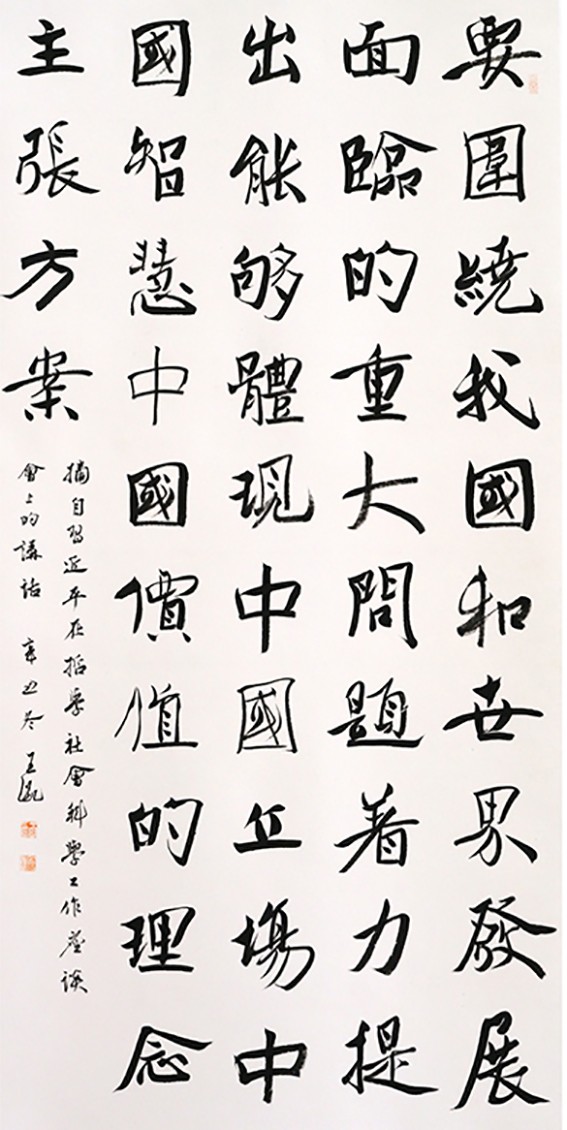 要圍繞我國和世界發展
面臨的重大問題着力提
出能够體現中國立場中
國智慧中國價值的理念
主張方案
摘自習近平在哲學社會科學工作座談
會上的講話 辛丑冬 王